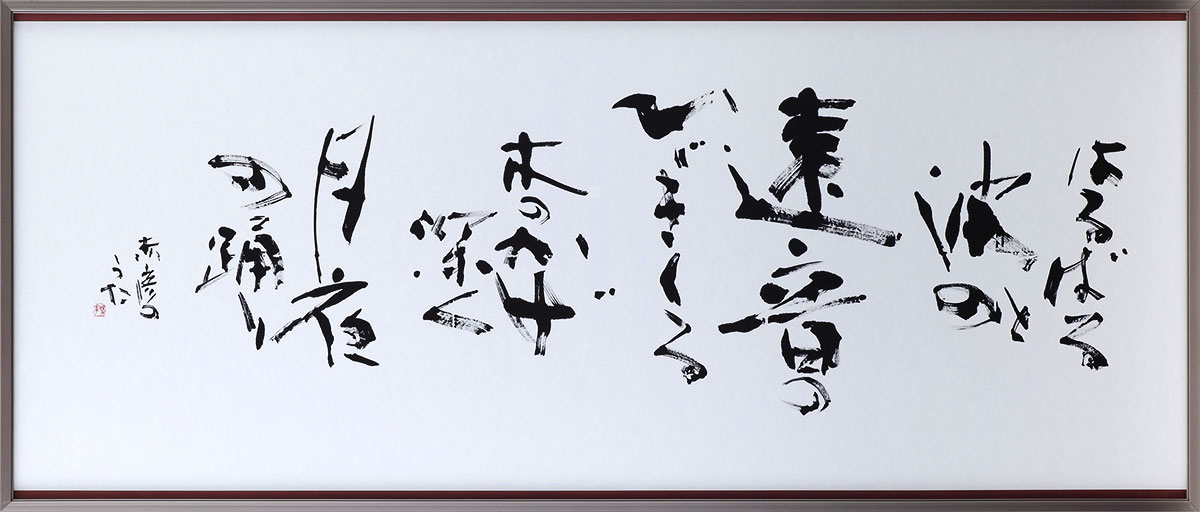 はるばると
波の
遠音の
ひゞきくる
木のかげ
深く
月夜
の踊り
赤彦の
うた